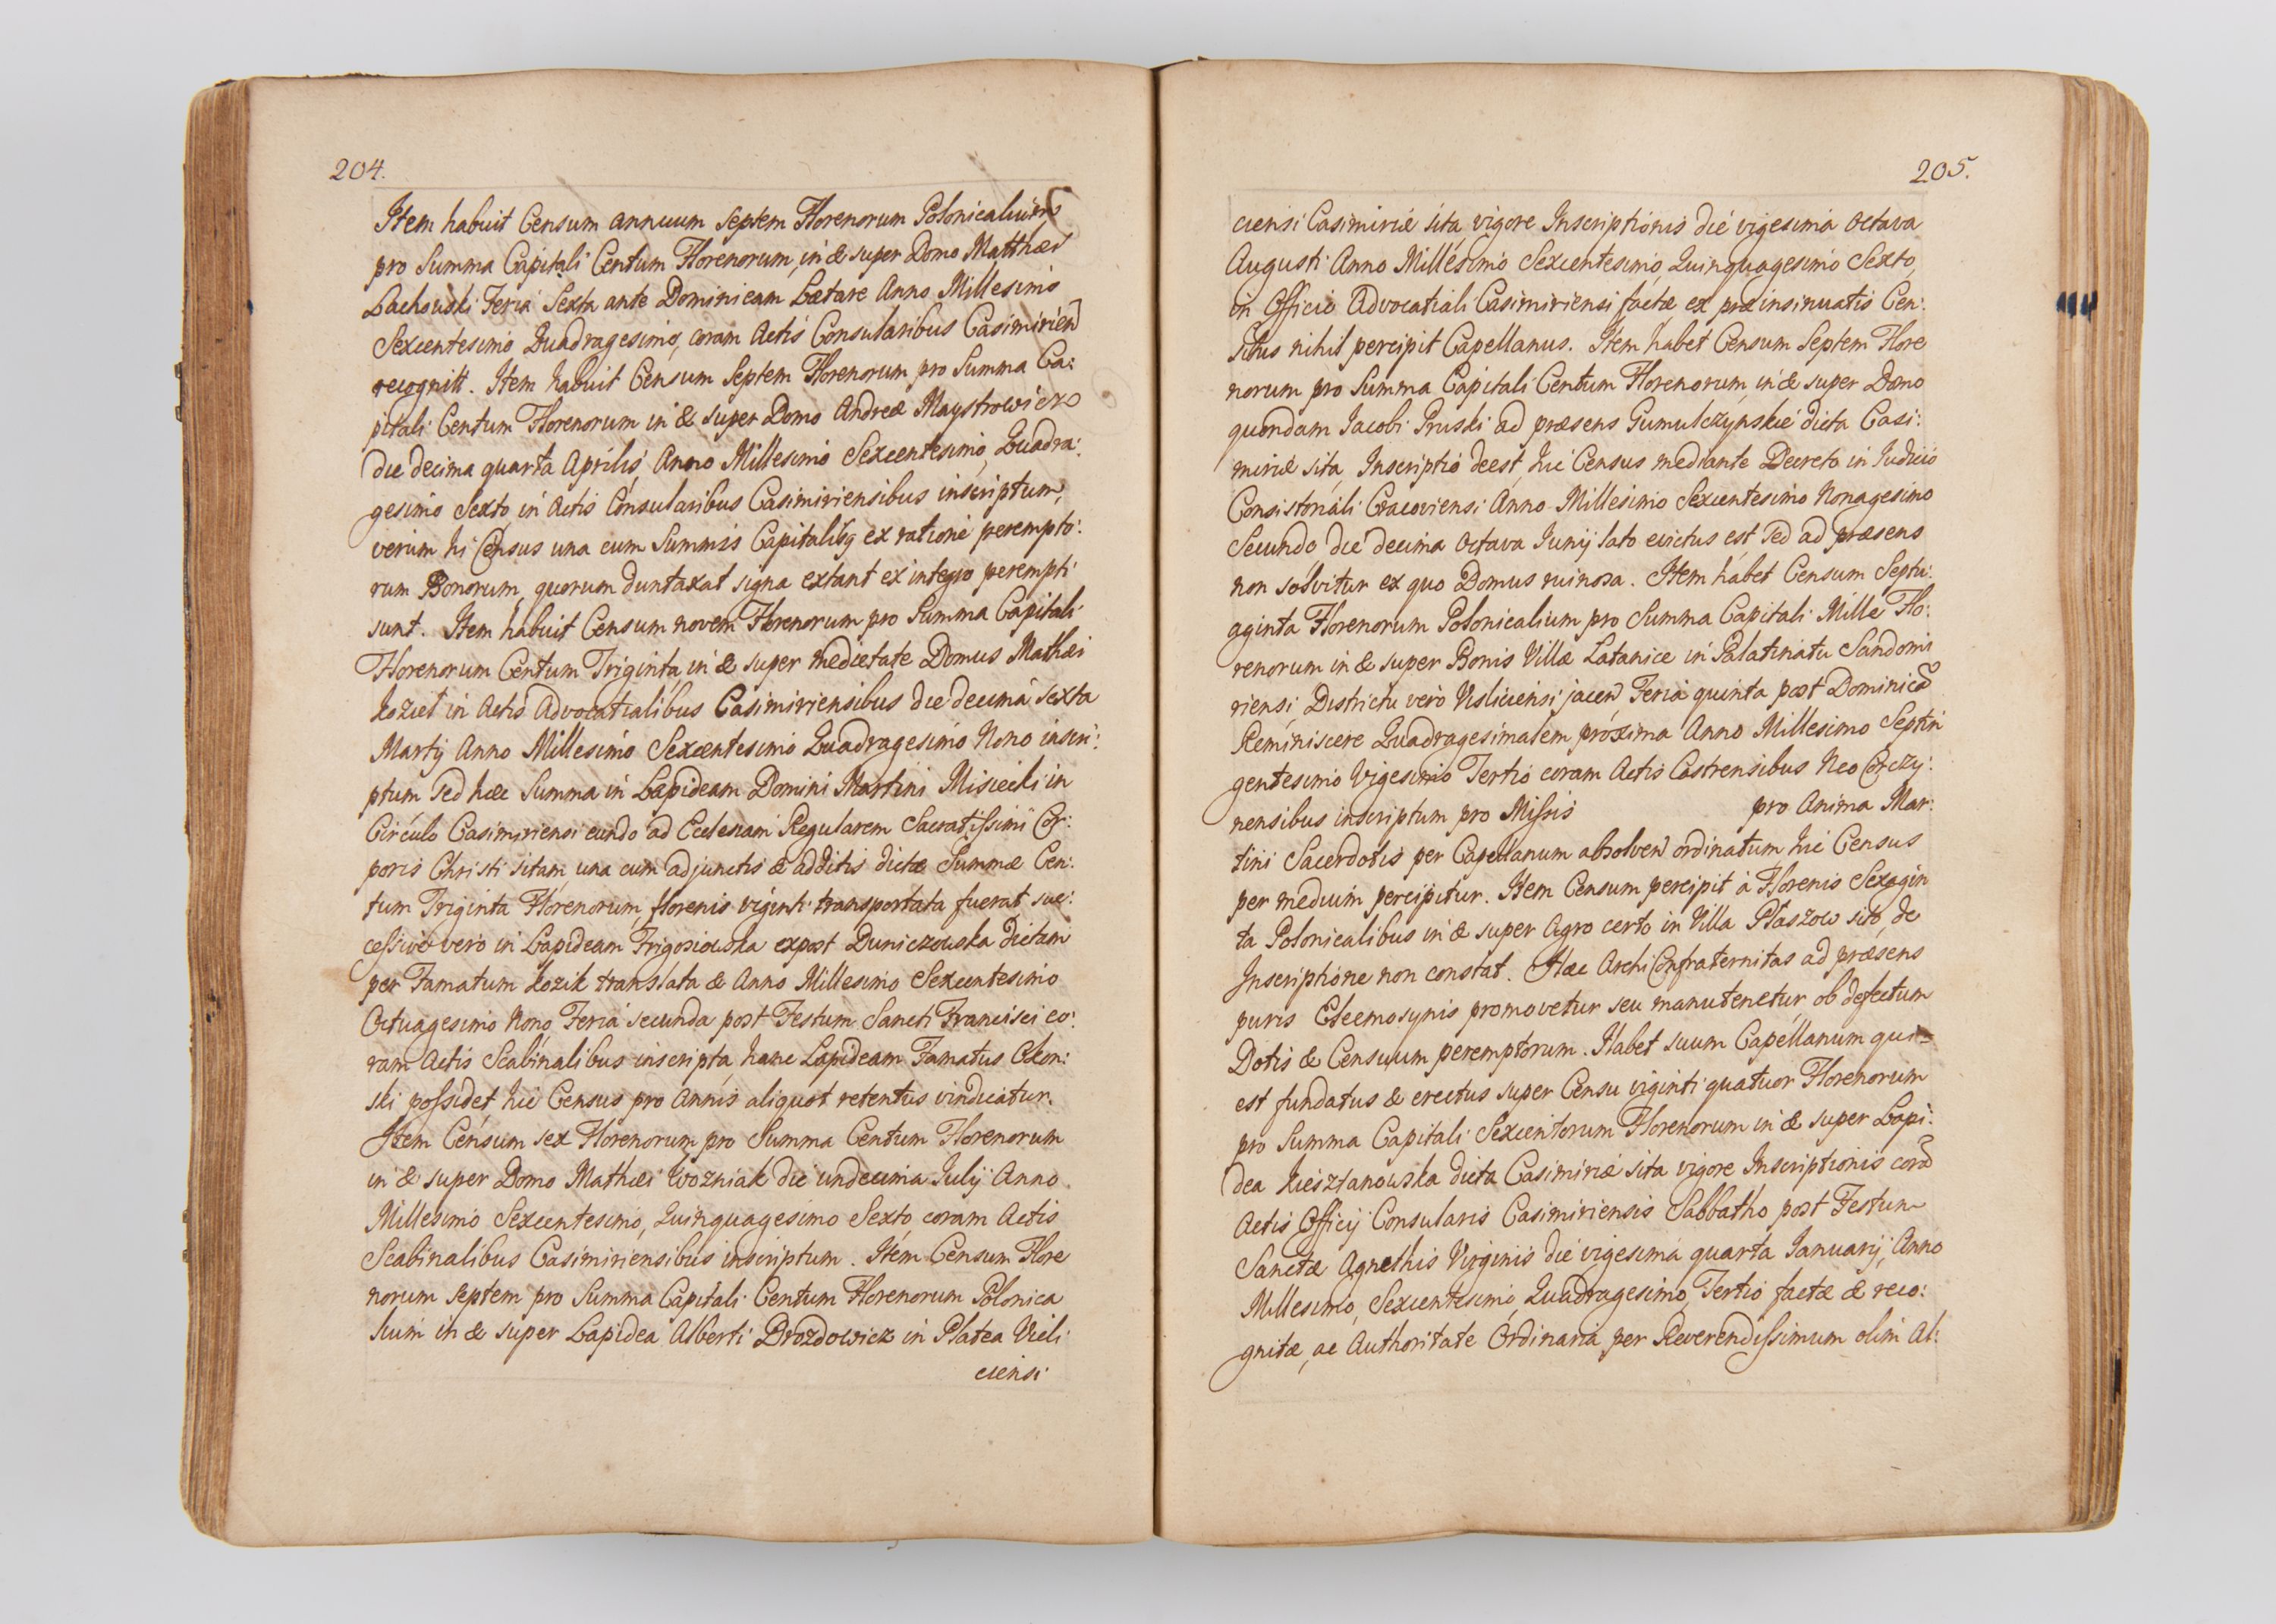 204.
Item habuit Censum annuum septem Florenorum Polonicalium
pro Summa Capitali Centum Florenorum, in & super Domo Matthæi
Lachowski Feria Sexta ante Dominicam Lætare Anno Millesimo
Sexcentesimo Quadragesimo, coram Actis Consularibus Casimirien
recognitt. Item habuit Censum Septem Florenorum pro Summa Ca:
pitali Centum Florenorum in & super Domo Andreæ Maystrowicz
die decima quarta Aprilis Anno Millesimo Sexcentesimo, Quadra:
gesimo Sexto, in Actis Consularibus Casimiriensibus inscriptum,
verum hi Census una cum Summis Capitalibq ex ratione perempto:
rum Bonorum, quorum duntaxat signa extant ex integro perempti
sunt. Item habuit Censum novem Florenorum pro Summa Capitali
Florenorum Centum Triginta, in & super medietate Domus Mathæi
Koziet in Actis Advocatialibus Casimiriensibus die decima sexta
Martij Anno Millesimo Sexcentesimo Quadragesimo Nono inscri:
ptum sed hæc Summa in Lapideam Domini Martini Misiecki in
Circulo Casimiriensi eundo ad Ecclesiam Regularem Sacratissimi Cor:
poris Christi sitam, una cum adjunctis & additis dictæ Summæ Cen:
tum Triginta Florenorum, florenis viginti transportata fuerat suc:
cessive vero in Lapideam Frigosiowska expost Duniczowska dictam
per Famatum Kozik translata & Anno Millesimo Sexcentesimo
Octuagesimo Nono, Feria secunda post Festum Sancti Francisci co:
ram Actis Scabinalibus inscripta, hanc Lapideam Famatus Olkon:
ski possidet, hic Census pro Annis aliquot retentus vindicatur.
Item Censum sex Florenorum pro Summa Centum Florenorum
in & super Domo Mathæi Wozniak die undecima Iulij Anno
Millesimo Sexcentesimo, Quinquagesimo Sexto, coram Actis
Scabinalibus Casimiriensibus inscriptum. Item Censum Flore
norum septem pro Summa Capitali Centum Florenorum Polonica
lium in & super Lapidea Alberti Drozdowicz in Platea Vieli
ciensi
205.
ciensi Casimiriæ sita, vigore Inscriptionis die vigesima octava
Augusti Anno Millesimo Sexcentesimo, Quinquagesimo Sexto,
in Officio Advocatiali Casimiriensi factæ ex præinsinuatis Cen:
sibus nihil percipit Capellanus. Item habet Censum Septem Flore
norum pro Summa Capitali Centum Florenorum, in & super Domo
quondam Iacobi Pruski ad præsens Gumulczynskie dicta Casi:
miriæ sita, Inscriptio deest, hic Census mediante Decreto in Iudicio
Consistoriali Cracoviensi Anno Millesimo Sexcentesimo Nonagesimo
Secundo die decima Octava Iunij lato evictus est sed ad præsens
non solvitur ex quo Domus ruinosa. Item habet Censum Septu:
aginta Florenorum Polonicalium pro Summa Capitali Mille Flo:
renorum in & super Bonis Villæ Latanice in Palatinatu Sandomi
riensi, Districtu vero Visliciensi jacen Feria quinta post Dominicã
Reminiscere Quadragesimalem proxima Anno Millesimo Septin
gentesimo Vigesimo Tertio coram Actis Castrensibus Neo Corczy:
nensibus inscriptum pro Missis pro Anima Mar:
tini Sacerdotis per Capellanum absolven ordinatum, hic Census
per medium percipitur. Item Censum percipit à Florenis Sexagin
ta Polonicalibus in & super Agro certo in Villa Płaszow sito, de
Inscriptione non constat. Hæc ArchiConfraternitas ad præsens
puris Eleemosynis promovetur seu manutenetur, ob defectum
Dotis & Censuum peremptorum. Habet suum Capellanum qui
est fundatus & erectus super Censu viginti quatuor Florenorum
pro Summa Capitali Sexcentorum Florenorum in & super Lapi:
dea Kiesztanowska dicta Casimiriæ sita vigore Inscriptionis corã
Actis Officij Consularis Casimiriensis Sabbatho post Festum
Sanctæ Agnethis Virginis die vigesima quarta Ianuarij, Anno
Millesimo, Sexcentesimo, Quadragesimo, Tertio factæ & reco:
gnitæ, ac Authoritate Ordinaria per Reverendissimum olim Al: